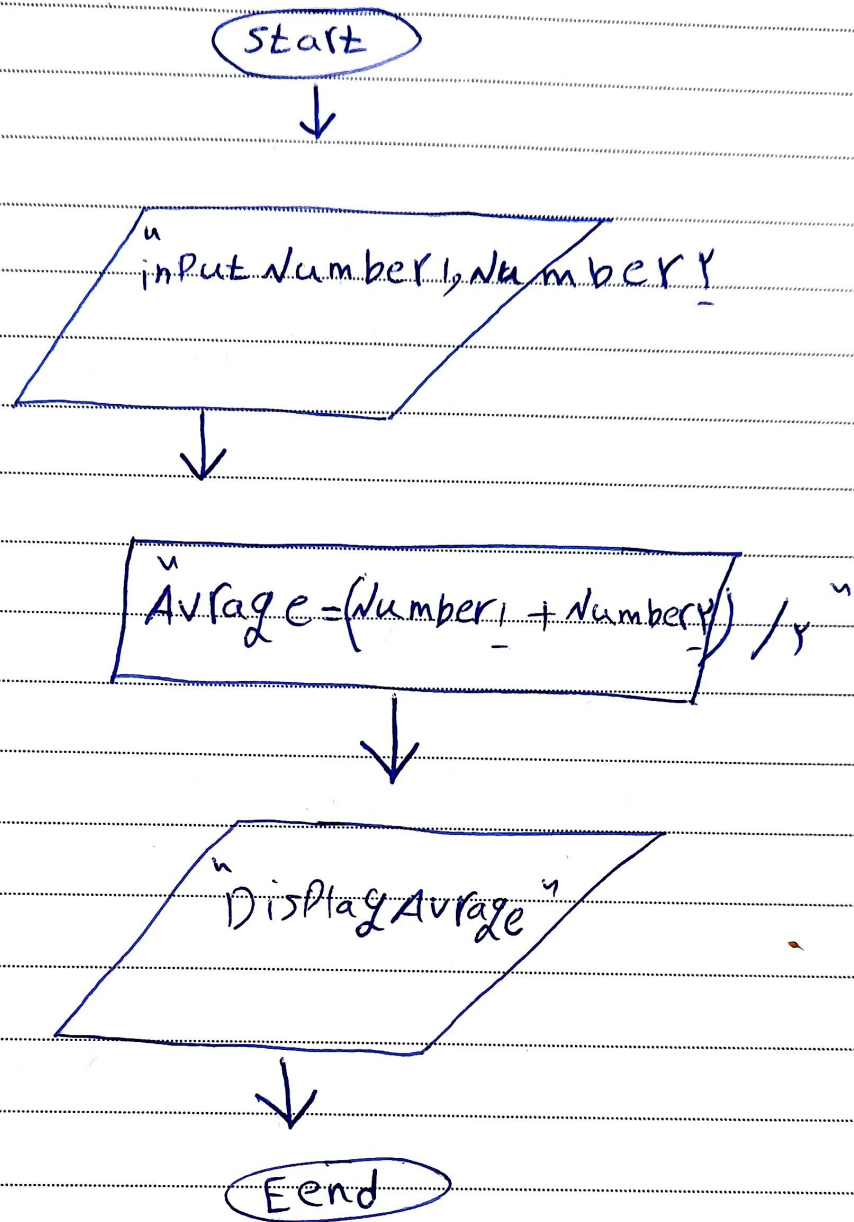 start
"input Number1, Number۲
"Avrage=(Number1 + Number۲) /۲"
"Display Avrage"
Eend